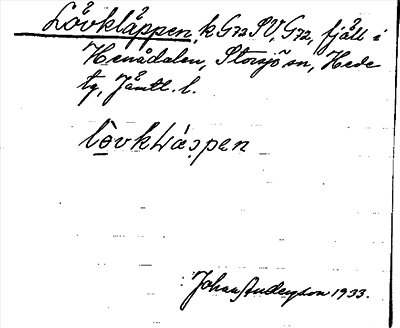 Lövkläppen, k G72 SV, G72, fjäll i
Henådalen, Storsjö sn, Hede
tg, Jämtl. l.
Johan Anderzon 1933.